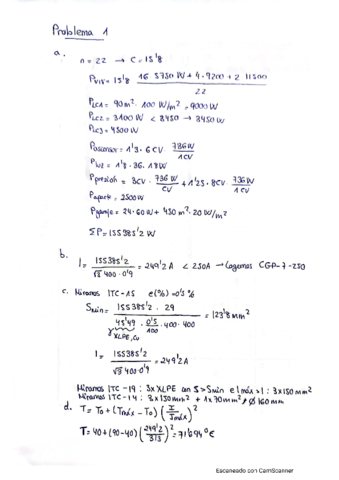 Problema 1
a.
n = 22 → C = 15'8
Pviv = 15'8 16·5750 W + 4·9200 + 2·11500
22
PLC1 = 90 m² · 100 W/m² = 9000 W
PLC2 = 3100 W < 3450 → 3450 W
PLC3 = 4500 W
Pascensor = 1'3 · 6CV · 736 W
1 CV
Pluz = 1'8 · 36 · 18 W
Ppresión = 8CV · 736 W + 1'25 · 8CV · 736 W
CV 1 CV
Paparc = 2500 W
Pgaraje = 24 · 60 W + 450 m² · 20 W/m²
ΣP = 155385'2 W
b.
I = 155385'2 = 249'2 A < 250A → Cogemos CGP-7-250
√3 400·0'9
c. Miramos ITC-15 e(%) = 0'5 %
Smin = 155385'2 · 29 = 123'8 mm²
45'49 · 0'5 · 400 · 400
100
XLPE, Cu
I = 155385'2 = 249'2 A
√3 400·0'9
Miramos ITC-19 : 3xXLPE con S > Smin e Imáx > I : 3x150 mm²
Miramos ITC-14 : 3x150 mm² + 1x70 mm², Ø160 mm
d. T = T0 + (Tmáx - T0) (I)²
Imáx
T = 40 + (90-40) (249'2)² = 71'694 °C
313
Escaneado con CamScanner